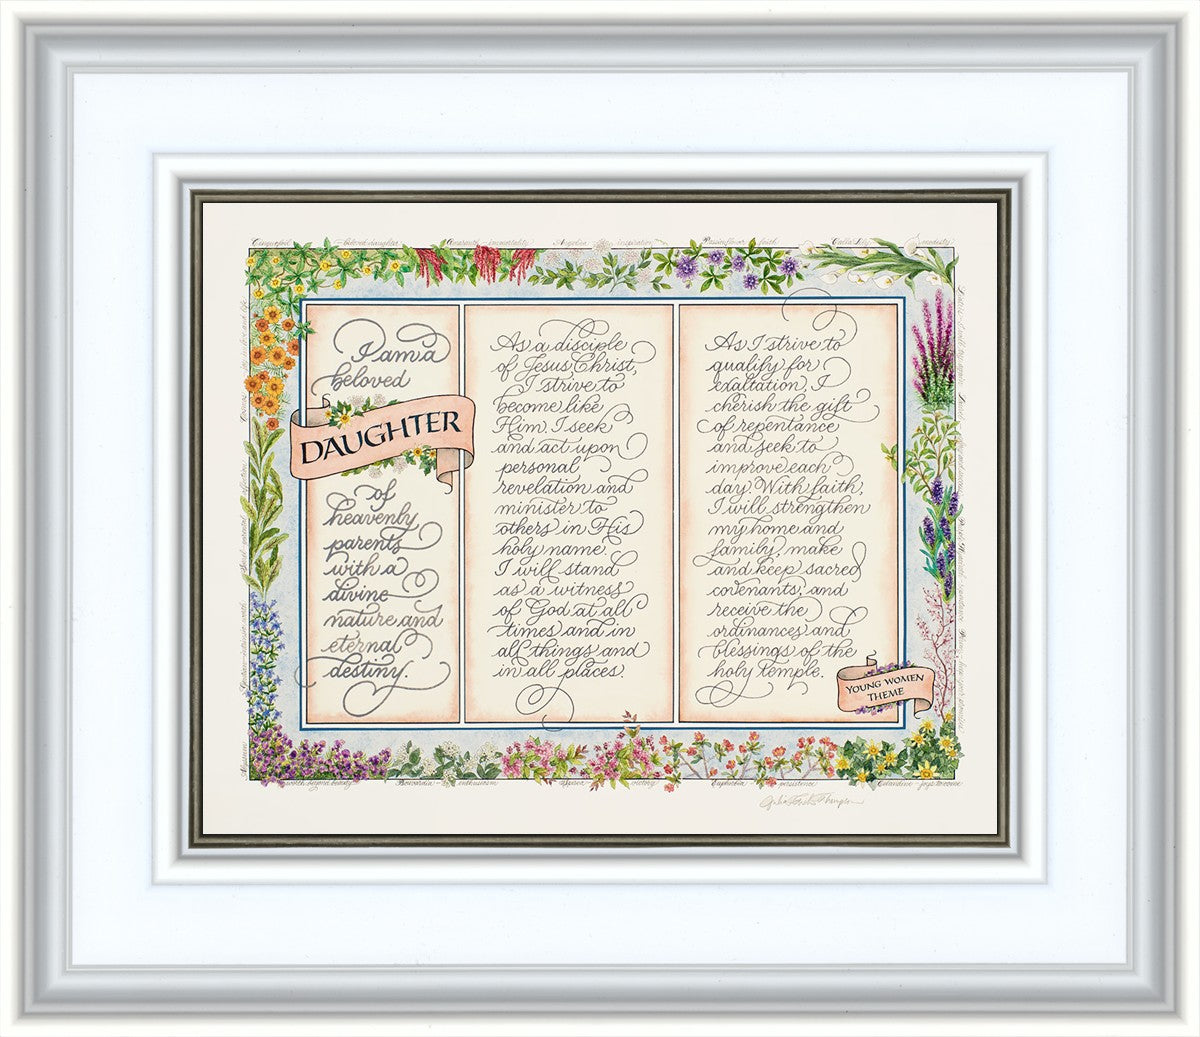 Cinquefoil - beloved daughter
inspiration
Passionflower - faith
Calla Lily - modesty
I am a
beloved
DAUGHTER
of
heavenly
parents
with a
divine
nature and
eternal
destiny.
As a disciple
of Jesus Christ,
I strive to
become like
Him. I seek
and act upon
personal
revelation and
minister to
others in His
holy name.
I will stand
as a witness
of God at all
times and in
all things and
in all places.
As I strive to
qualify for
exaltation, I
cherish the gift
of repentance
and seek to
improve each
day. With faith,
I will strengthen
my home and
family, make
and keep sacred
covenants, and
receive the
ordinances and
blessings of the
holy temple.
YOUNG WOMEN
THEME
Bouvardia - enthusiasm
victory
Euphorbia - persistence
Celandine - joys to come